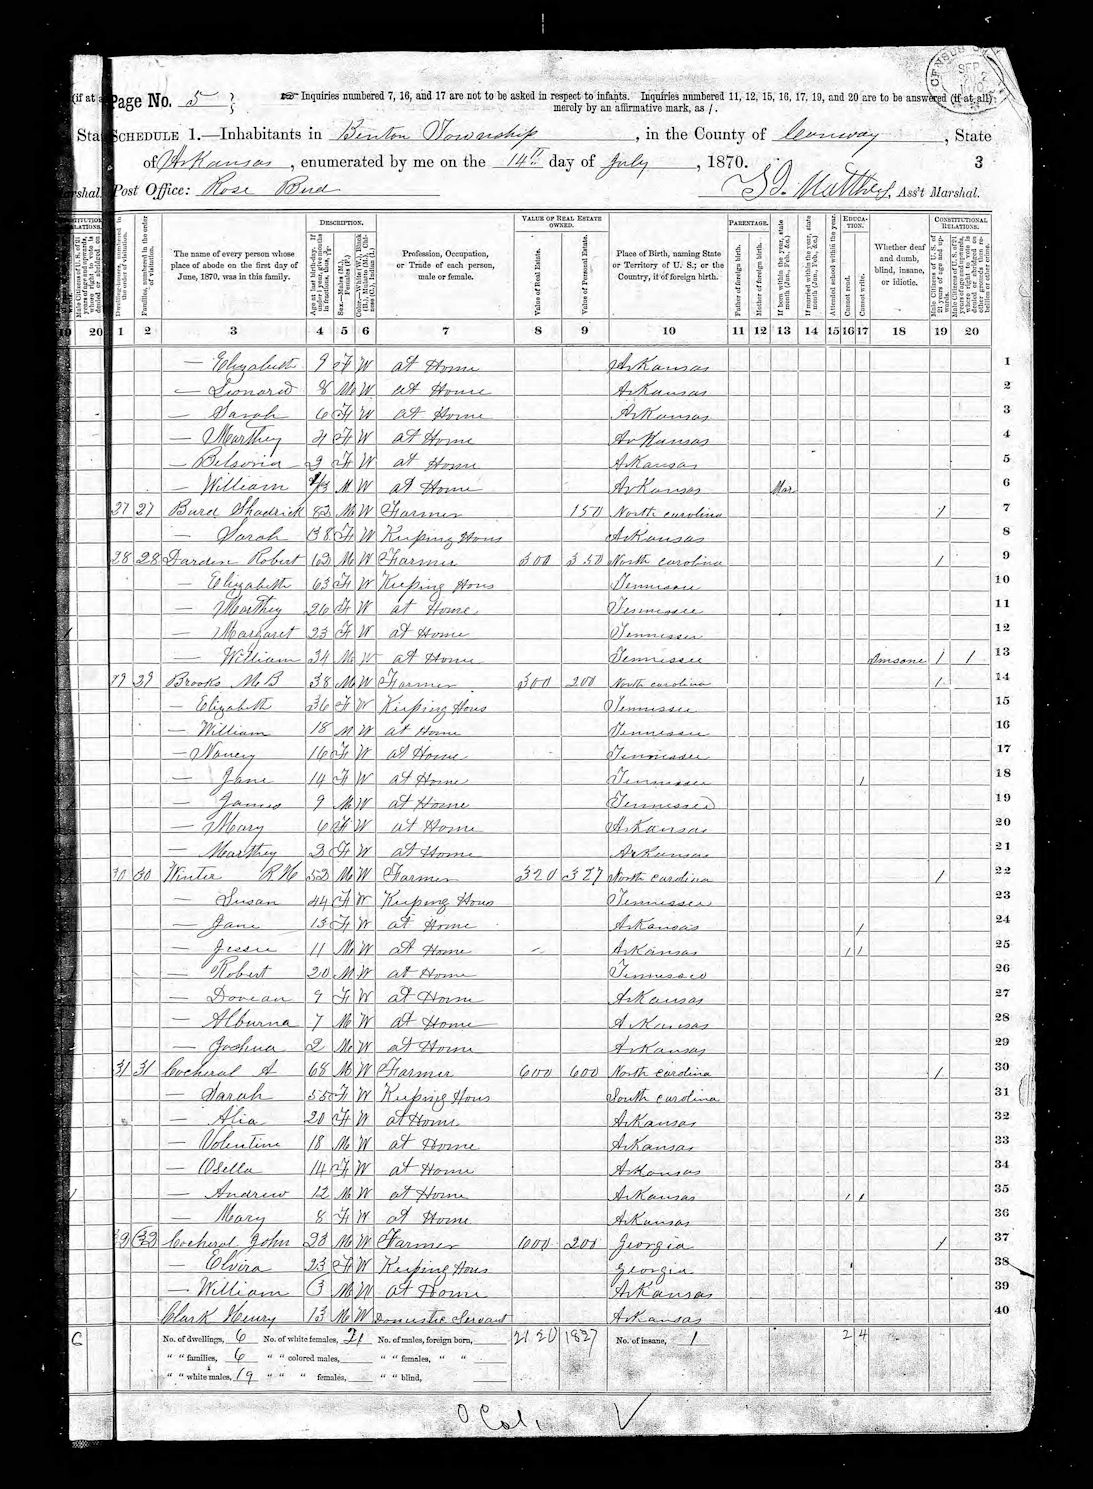 Page No. 5
Inquiries numbered 7, 16, and 17 are not to be asked in respect to infants. Inquiries numbered 11, 12, 15, 16, 17, 19, and 20 are to be answered (if at all)
merely by an affirmative mark, as /.
SCHEDULE 1.—Inhabitants in Benton Township, in the County of Conway, State
of Arkansas, enumerated by me on the 14th day of July, 1870. 3
Post Office: Rose Bud Ass't Marshal.
DESCRIPTION. VALUE OF REAL ESTATE OWNED. PARENTAGE. EDUCATION. CONSTITUTIONAL RELATIONS.
Dwelling-houses, numbered in the order of visitation.
Families, numbered in the order of visitation.
The name of every person whose place of abode on the first day of June, 1870, was in this family.
Age at last birth-day. If under 1 year, give months in fractions, thus, 3/12.
Sex.—Males (M.), Females (F.)
Color.—White (W.), Black (B.), Mulatto (M.), Chinese (C.), Indian (I.)
Profession, Occupation, or Trade of each person, male or female.
Value of Real Estate.
Value of Personal Estate.
Place of Birth, naming State or Territory of U. S.; or the Country, if of foreign birth.
Father of foreign birth.
Mother of foreign birth.
If born within the year, state month (Jan., Feb., &c.)
If married within the year, state month (Jan., Feb., &c.)
Attended school within the year.
Cannot read.
Cannot write.
Whether deaf and dumb, blind, insane, or idiotic.
Male Citizens of U. S. of 21 years of age and upwards.
Male Citizens of U. S. of 21 years of age and upwards, where right to vote is denied or abridged on other grounds than rebellion or other crime.
1 2 3 4 5 6 7 8 9 10 11 12 13 14 15 16 17 18 19 20
— Elizabeth 9 F W at Home Arkansas 1
— Leonard 8 M W at Home Arkansas 2
— Sarah 6 F W at Home Arkansas 3
— Marthey 4 F W at Home Arkansas 4
— 2 F W at Home Arkansas 5
— William M W at Home Arkansas Mar 6
27 27 Burd Shadrick 82 M W Farmer 150 North carolina / 7
— Sarah 38 F W Keeping Hous Arkansas 8
28 28 Darden Robert 62 M W Farmer 300 350 North carolina / 9
— Elizabeth 63 F W Keeping Hous Tennessee 10
— Marthey 26 F W at Home Tennessee 11
— Margaret 23 F W at Home Tennessee 12
— William 34 M W at Home Tennessee Insane / / 13
29 29 Brooks M B 38 M W Farmer 300 200 North carolina / 14
— Elizabeth 36 F W Keeping Hous Tennessee 15
— William 18 M W at Home Tennessee 16
— Nancy 16 F W at Home Tennessee 17
— Jane 14 F W at Home Tennessee / 18
— James 9 M W at Home Tennessee 19
— Mary 6 F W at Home Arkansas 20
— Marthey 2 F W at Home Arkansas 21
30 30 Winter R M 52 M W Farmer 320 327 North carolina / 22
— Susan 44 F W Keeping Hous Tennessee 23
— Jane 13 F W at Home Arkansas / 24
— Jessee 11 M W at Home Arkansas / / 25
— Robert 20 M W at Home Tennessee 26
— Dovean 9 F W at Home Arkansas 27
— Alburna 7 M W at Home Arkansas 28
— Joshua 2 M W at Home Arkansas 29
31 31 Cocheral A 68 M W Farmer 600 600 North carolina / 30
— Sarah 55 F W Keeping Hous South carolina 31
— Alia 20 F W at Home Arkansas 32
— Volentine 18 M W at Home Arkansas 33
— Osella 14 F W at Home Arkansas 34
— Andrew 12 M W at Home Arkansas / / 35
— Mary 8 F W at Home Arkansas 36
32 32 Cocheral John 23 M W Farmer 600 200 Georgia / 37
— Elvira 23 F W Keeping Hous Georgia 38
— William 3 M W at Home Arkansas 39
Clark Henry 13 M W Domestic Servant Arkansas 40
No. of dwellings, 6 No. of white females, 21 No. of males, foreign born, 2120 1827 No. of insane, 1 2 4
" " families, 6 " " colored males, " " females, " "
" " white males, 19 " " " females, " " blind,